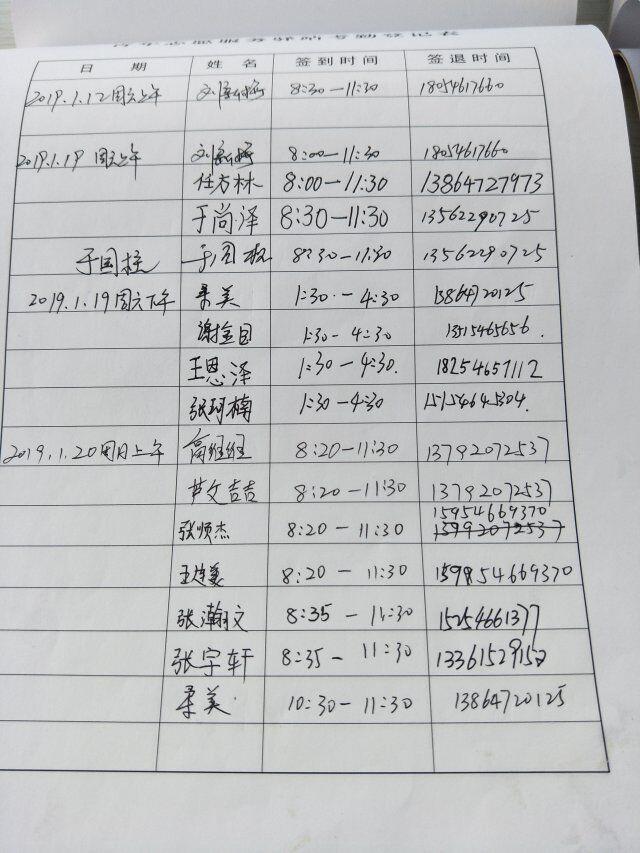 志愿服务驿站考勤登记表
日 期 姓 名 签到时间 签退时间
2019.1.12周六上午 8:30-11:30 18054617660
2019.1.19 周六上午 8:00-11:30 18054617660
任方林 8:00-11:30 13864727973
于尚泽 8:30-11:30 13562290725
于国柱 于国权 8:30-11:30 13562290725
2019.1.19周六下午 柔美 1:30-4:30 13864720125
谢金国 1:30-4:30 13515465656.
王恩泽 1:30-4:30. 18254657112
张珂楠 1:30-4:30 15154645304.
2019.1.20周日上午 高班班 8:20-11:30 13792072537
芦文吉吉 8:20-11:30 13792072537
15954669370
张顺杰 8:20-11:30 13792072537
8:20-11:30 159854669370
张瀚文 8:35-11:30 15254661377
张宇轩 8:35-11:30 13361529152
柔美 10:30-11:30 13864720125